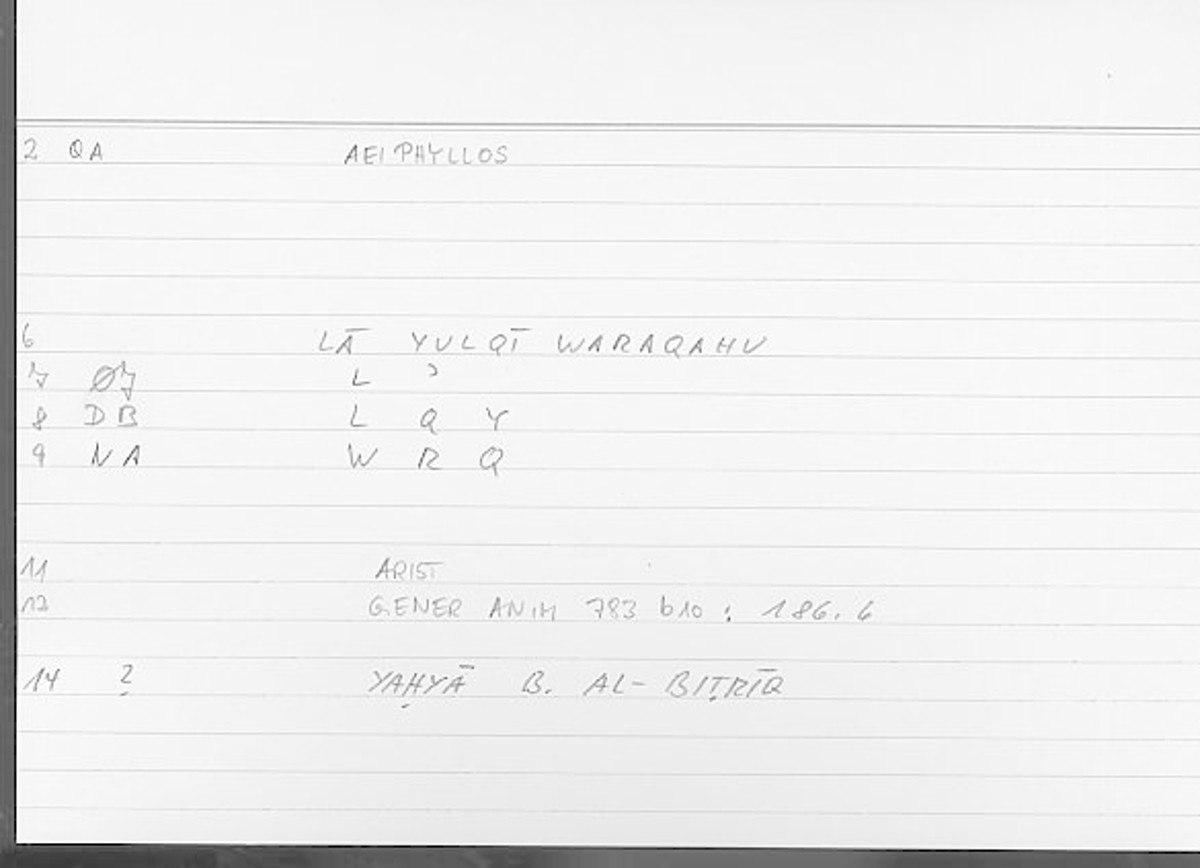 2 QA AEIPHYLLOS
6 LĀ YULQĪ WARAQAHU
7 Ø7 L ʾ
8 DB L Q Y
9 NA W R Q
11 ARIST
12 GENER ANIM 783 b10 : 186.6
14 2 YAḤYĀ B. AL-BIṬRĪQ